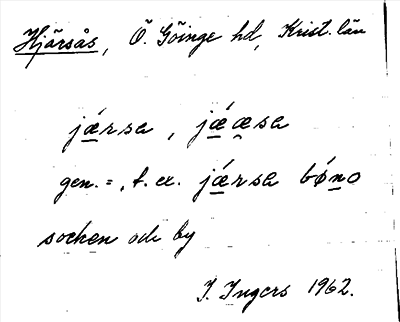 Hjärsås, Ö. Göinge hd, Krist. län
jǽrsa, jǽæsa
gen. =, t. ex. jǽrsa bǿno
socken och by
I. Ingers 1962.